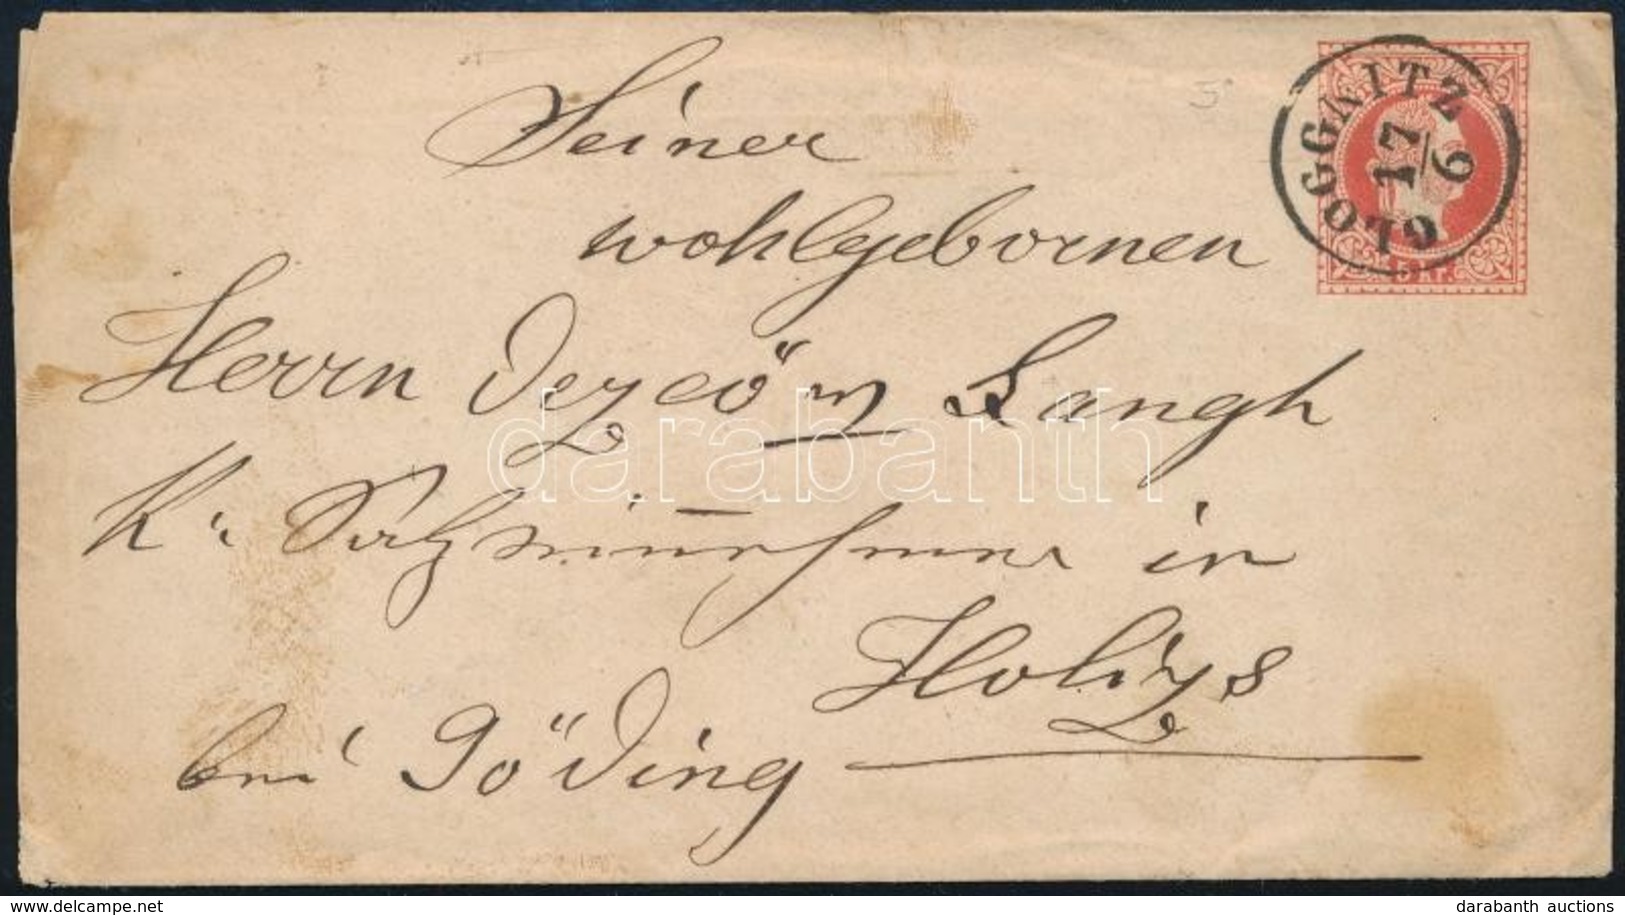 Seiner
GLOGGNITZ
17
6
5 Kr.
wohlgebornen
Herrn Langh
K. in
Holics
bei Göding
darabanth
delcampe.net
darabanth auctions